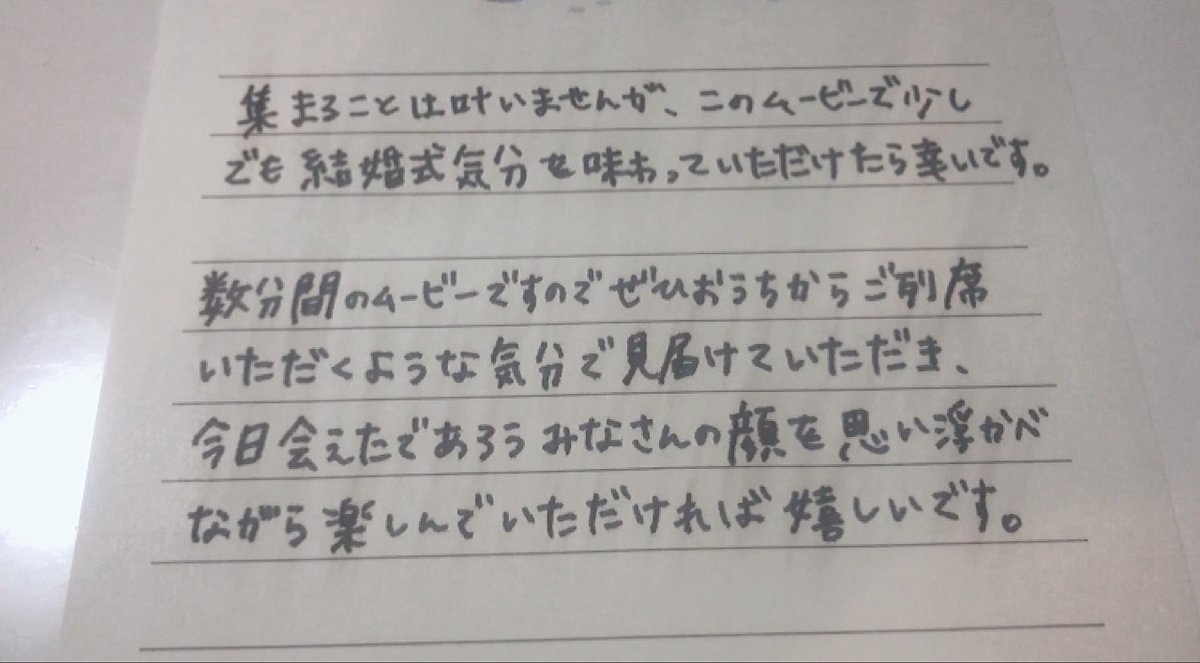 集まることは叶いませんが、このムービーで少し
でも結婚式気分を味わっていただけたら幸いです。
数分間のムービーですのでぜひおうちからご列席
いただくような気分で見届けていただき、
今日会えたであろうみなさんの顔を思い浮かべ
ながら楽しんでいただければ嬉しいです。